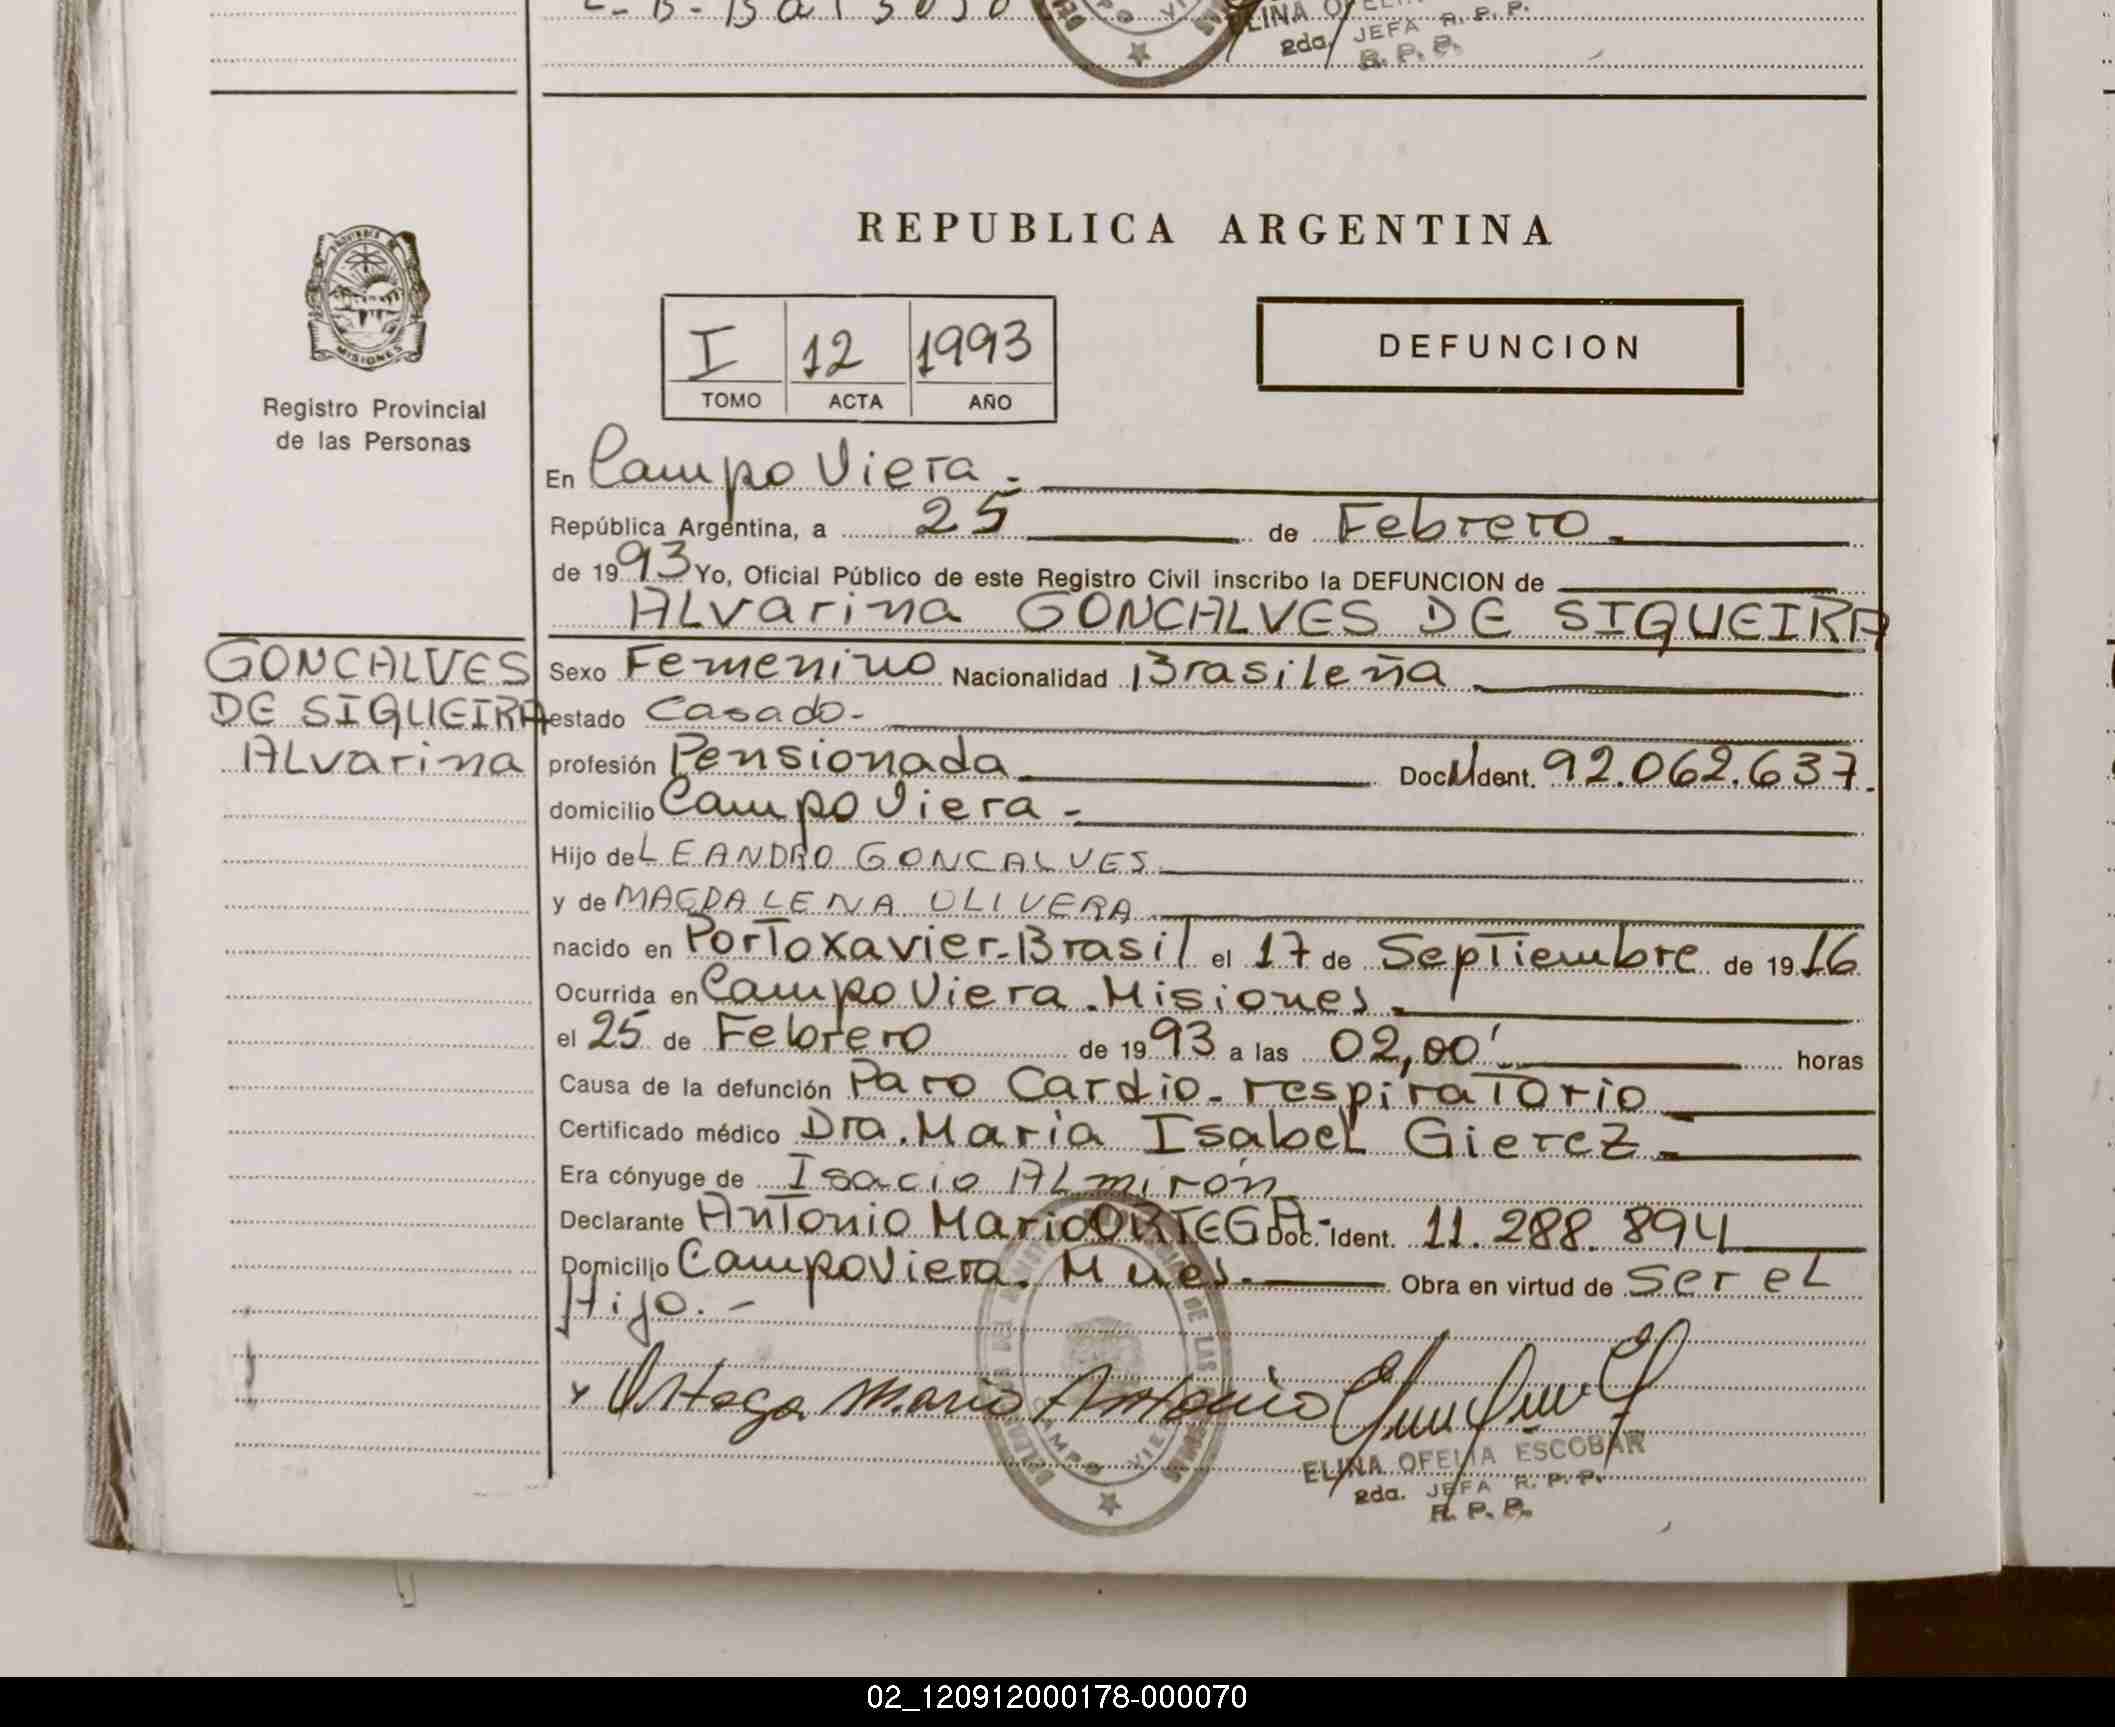 REPUBLICA ARGENTINA
I 12 1993
TOMO ACTA AÑO
DEFUNCION
MISIONES
Registro Provincial
de las Personas
En Campo Viera.-
República Argentina, a 25 de Febrero.
de 1993 Yo, Oficial Público de este Registro Civil inscribo la DEFUNCION de
ALvarina GONCALVES DE SIQUEIRA
GONCALVES
DE SIQUEIRA
ALvarina
Sexo Femenino Nacionalidad Brasileña
estado Casado-
profesión Pensionada Doc. Ident. 92.062.637.
domicilio Campo Viera-
Hijo de LEANDRO GONCALVES
y de MAGDALENA OLIVERA
nacido en Porto xavier-Brasil el 17 de Septiembre de 1916
Ocurrida en Campo Viera. Misiones.
el 25 de Febrero de 1993 a las 02,00' horas
Causa de la defunción Paro Cardio-respiratorio
Certificado médico Dra. Maria Isabel Gierez
Era cónyuge de Isacio ALmirón
Declarante Antonio Mario ORTEGA- Doc. Ident. 11.288.894
Domicilio Campo Viera. Mnes. Obra en virtud de ser eL
Hijo.-
x Ortega Mario Antonio
ELINA OFELIA ESCOBAR
2da. JEFA R. P. P.
R. P. P.
02_120912000178-000070